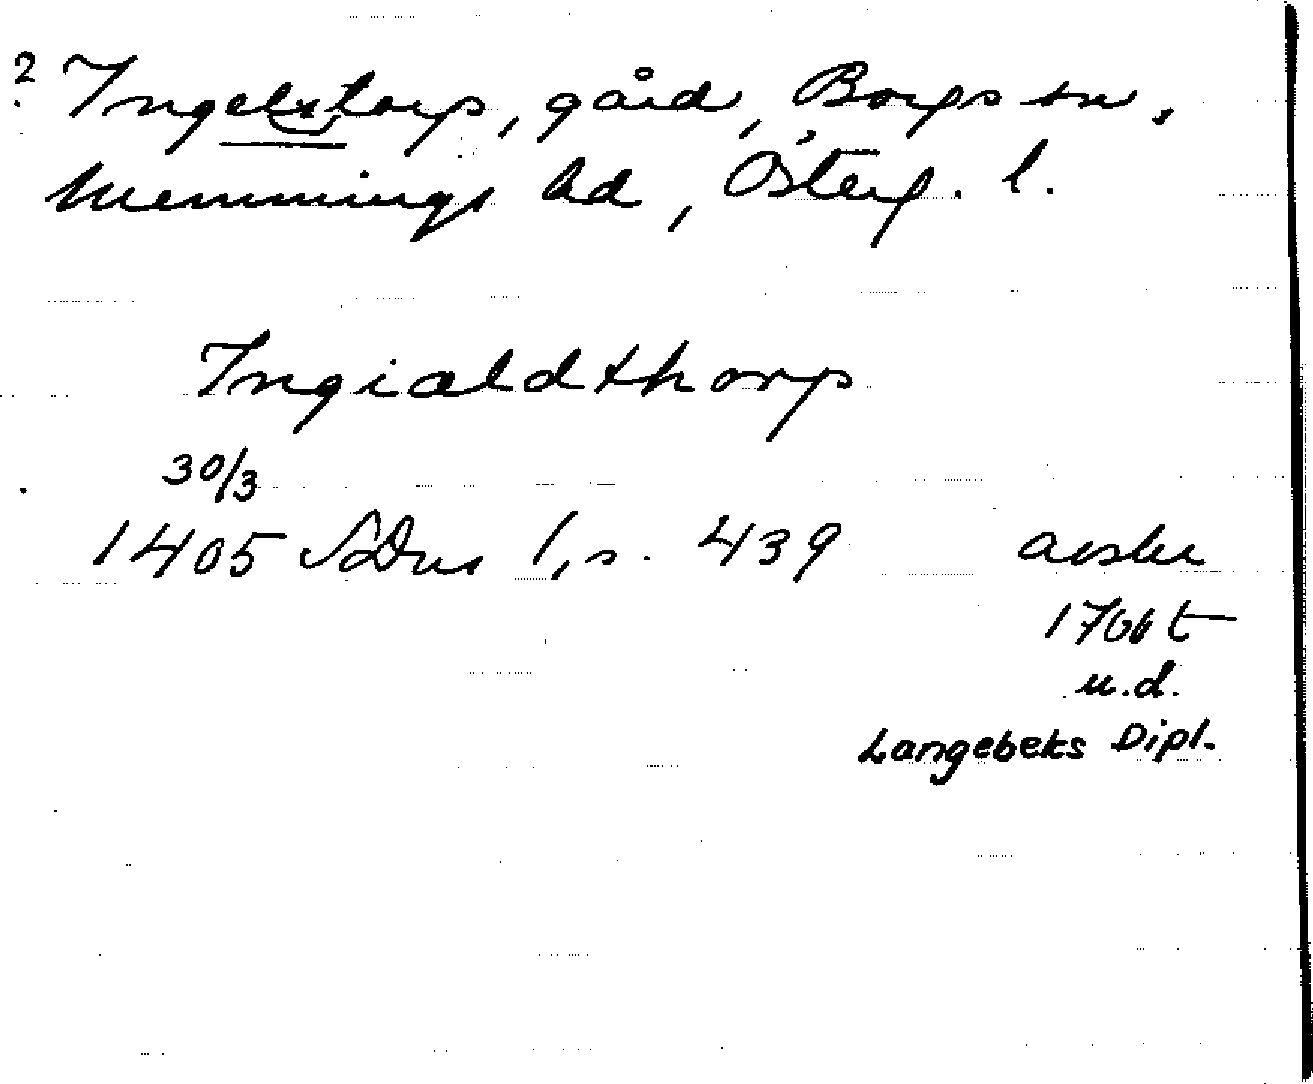 ? Ingelstorp, gård, Borgs sn.
Memmings hd, Österg. l.
Ingialdthorp
30/3
1405 SDns 1, s. 439 avskr
1700t
u.d.
Langebeks Dipl.